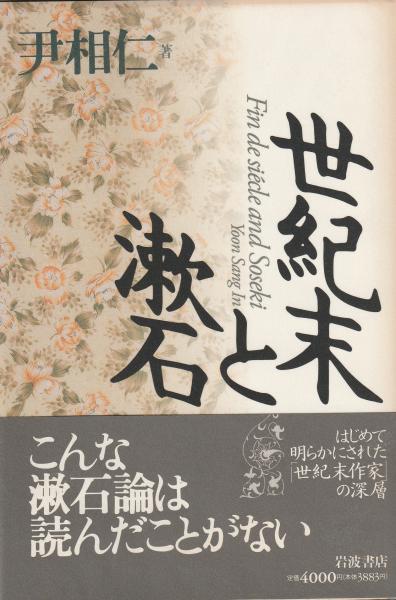 尹相仁 著
世紀末と
漱石
Fin de siécle and Soseki
Yoon Sang In
はじめて
明らかにされた
「世紀末作家」
の深層
こんな
漱石論は
読んだことがない
岩波書店
定価4000円(本体3883円)